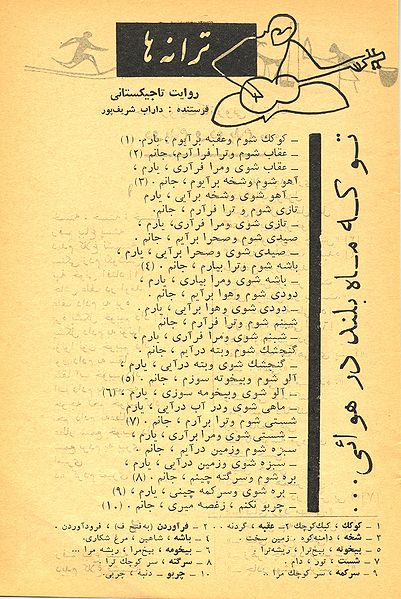 ترانه ها
روایت تاجیکستانی
فرستنده : داراب شریف‌پور
تو که ماه بلند در هوائی...
ـ کوکک شوم وعقبه برآیوم ، یارم. (۱)
ـ عقاب شوم وترا فرا آرم، جانم (۲)
ـ عقاب شوی ومرا فرآری ، یارم ،
آهو شوم وشخه برآیوم ، جانم . (۳)
ـ آهو شوی وشخه برآیی ، یارم ،
تازی شوم و ترا فرآرم ، جانم.
ـ تازی شوی ومرا فرآری، یارم ،
صیدی شوم وصحرا برآیم ، جانم .
ـ صیدی شوی وصحرا برآیی ، یارم ،
باشه شوم وترا بیارم ، جانم . (۴)
ـ باشه شوی ومرا بیاری ، یارم ،
دودی شوم وهوا برآیم ، جانم .
ـ دودی شوی وهوا برآیی ، یارم ،
شبنم شوم وترا فرآرم ، جانم .
ـ شبنم شوی ومرا فرآری ، یارم ،
گنجشک شوم وبته درآیم ، جانم .
ـ گنجشک شوی وبته درآیی ، یارم ،
آلو شوم وبیخوته سوزم ، جانم . (۵)
ـ آلو شوی وبیخومه سوزی ، یارم ، (۶)
ماهی شوم ودر آب درآیی ، یارم ،
شستی شوم وترا برآرم ، جانم . (۷)
ـ شستی شوی ومرا برآری ، یارم ،
سبزه شوم وزمین درآیم ، جانم .
ـ سبزه شوی وزمین درآیی ، یارم ،
بره شوم وسرگته چینم ، جانم . (۸)
ـ بره شوی وسرکمه چینی ، یارم ، (۹)
ـ چربو نکنم ، زغصه میری ، جانم . (۱۰)
۱ ـ کوکک ، کبک‌کوچک ۲ـ عقبه ، گردنه .. ۲ ـ فرآوردن (به‌فتح ف) ، فرودآوردن .
۳ ـ شخه ، دامنه‌کوه ، زمین سخت . ۴ ـ باشه ، شاهین ، مرغ شکاری.
۵ ـ بیخوته ، بیخ‌ترا ، ریشه‌ترا . ۶ ـ بیخومه ، بیخ‌مرا ، ریشه مرا ...
۷ ـ شست ، تور ، دام . ۸ ـ سرگته ، سر کوچک ترا ..
۹ ـ سرکمه ، سر کوچک مرا .. ۱۰ ـ چربو ـ دنبه ، چربی.